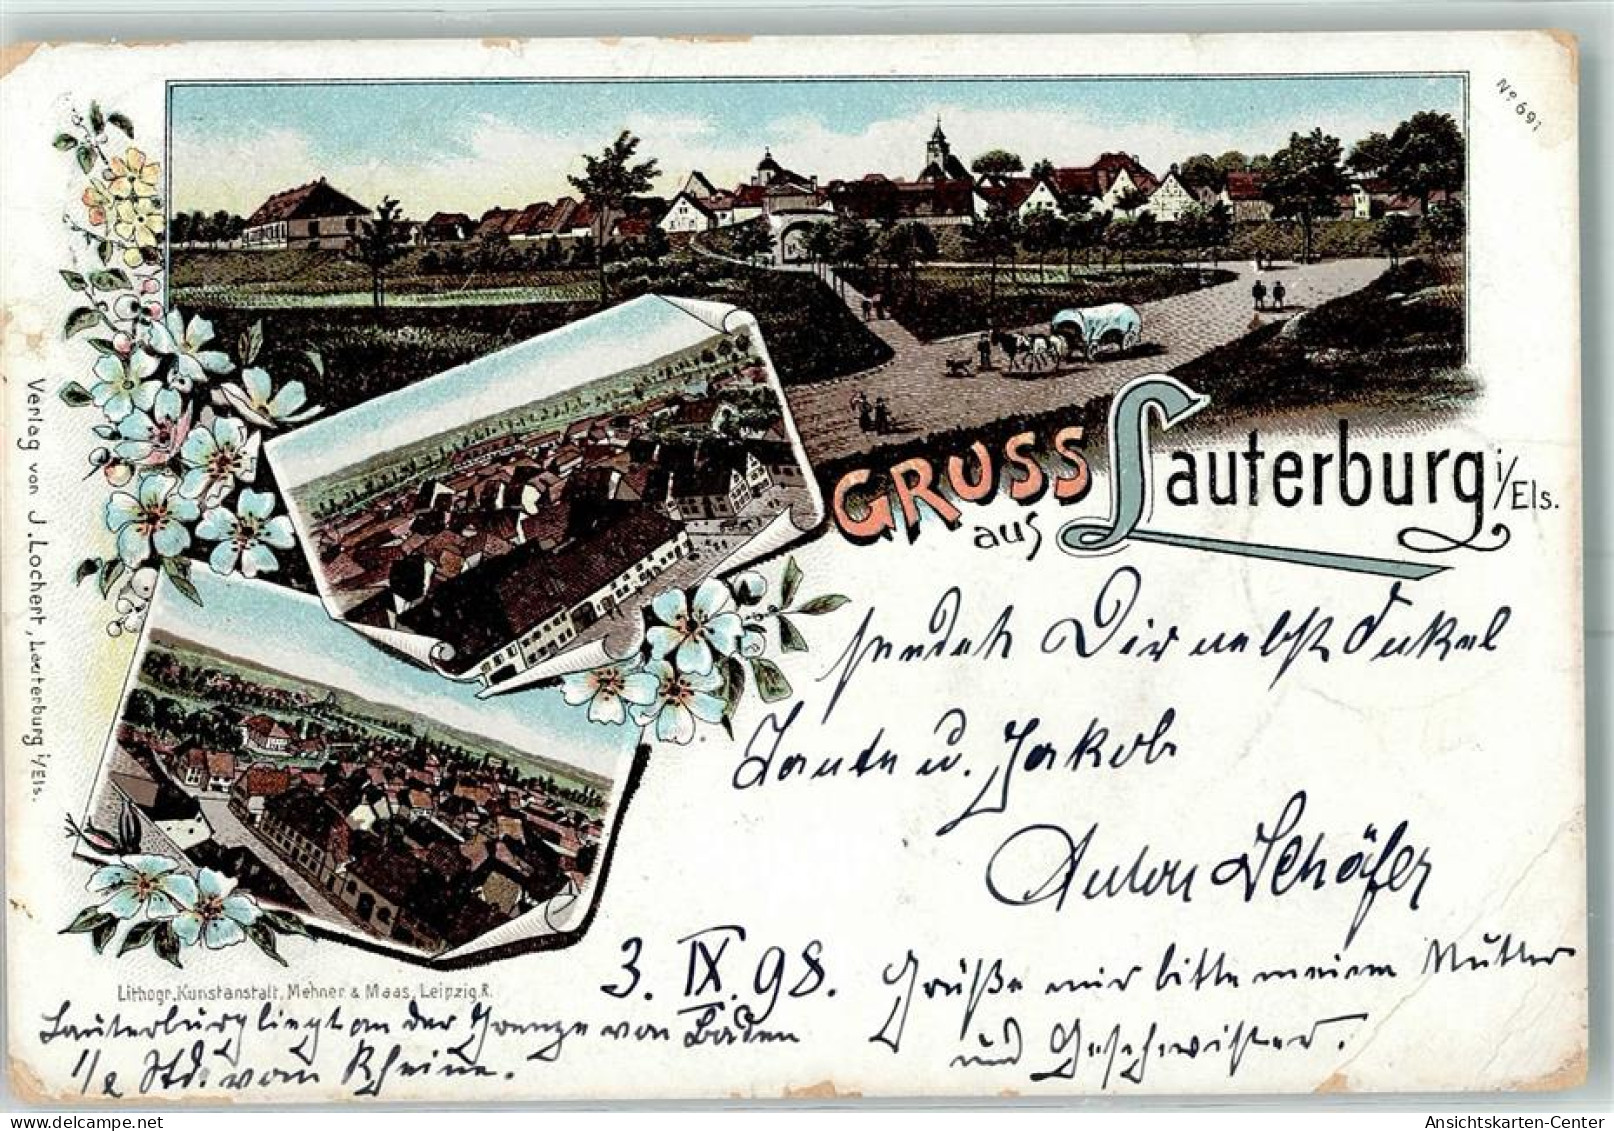 No 691
GRUSS
aus
Lauterburg i/Els.
sendet Dir nebst Onkel
Tante u. Jakob
Anton Schäfer
3. IX. 98.
Grüße mir bitte meine Mutter
und Geschwister.
Lithogr. Kunstanstalt, Mehner & Maas, Leipzig, R.
Lauterburg liegt an der Grenze von Baden
1/2 Std. vom Rheine.
Verlag von J. Lochert, Lauterburg i/Els.
Ansichtskarten-Center